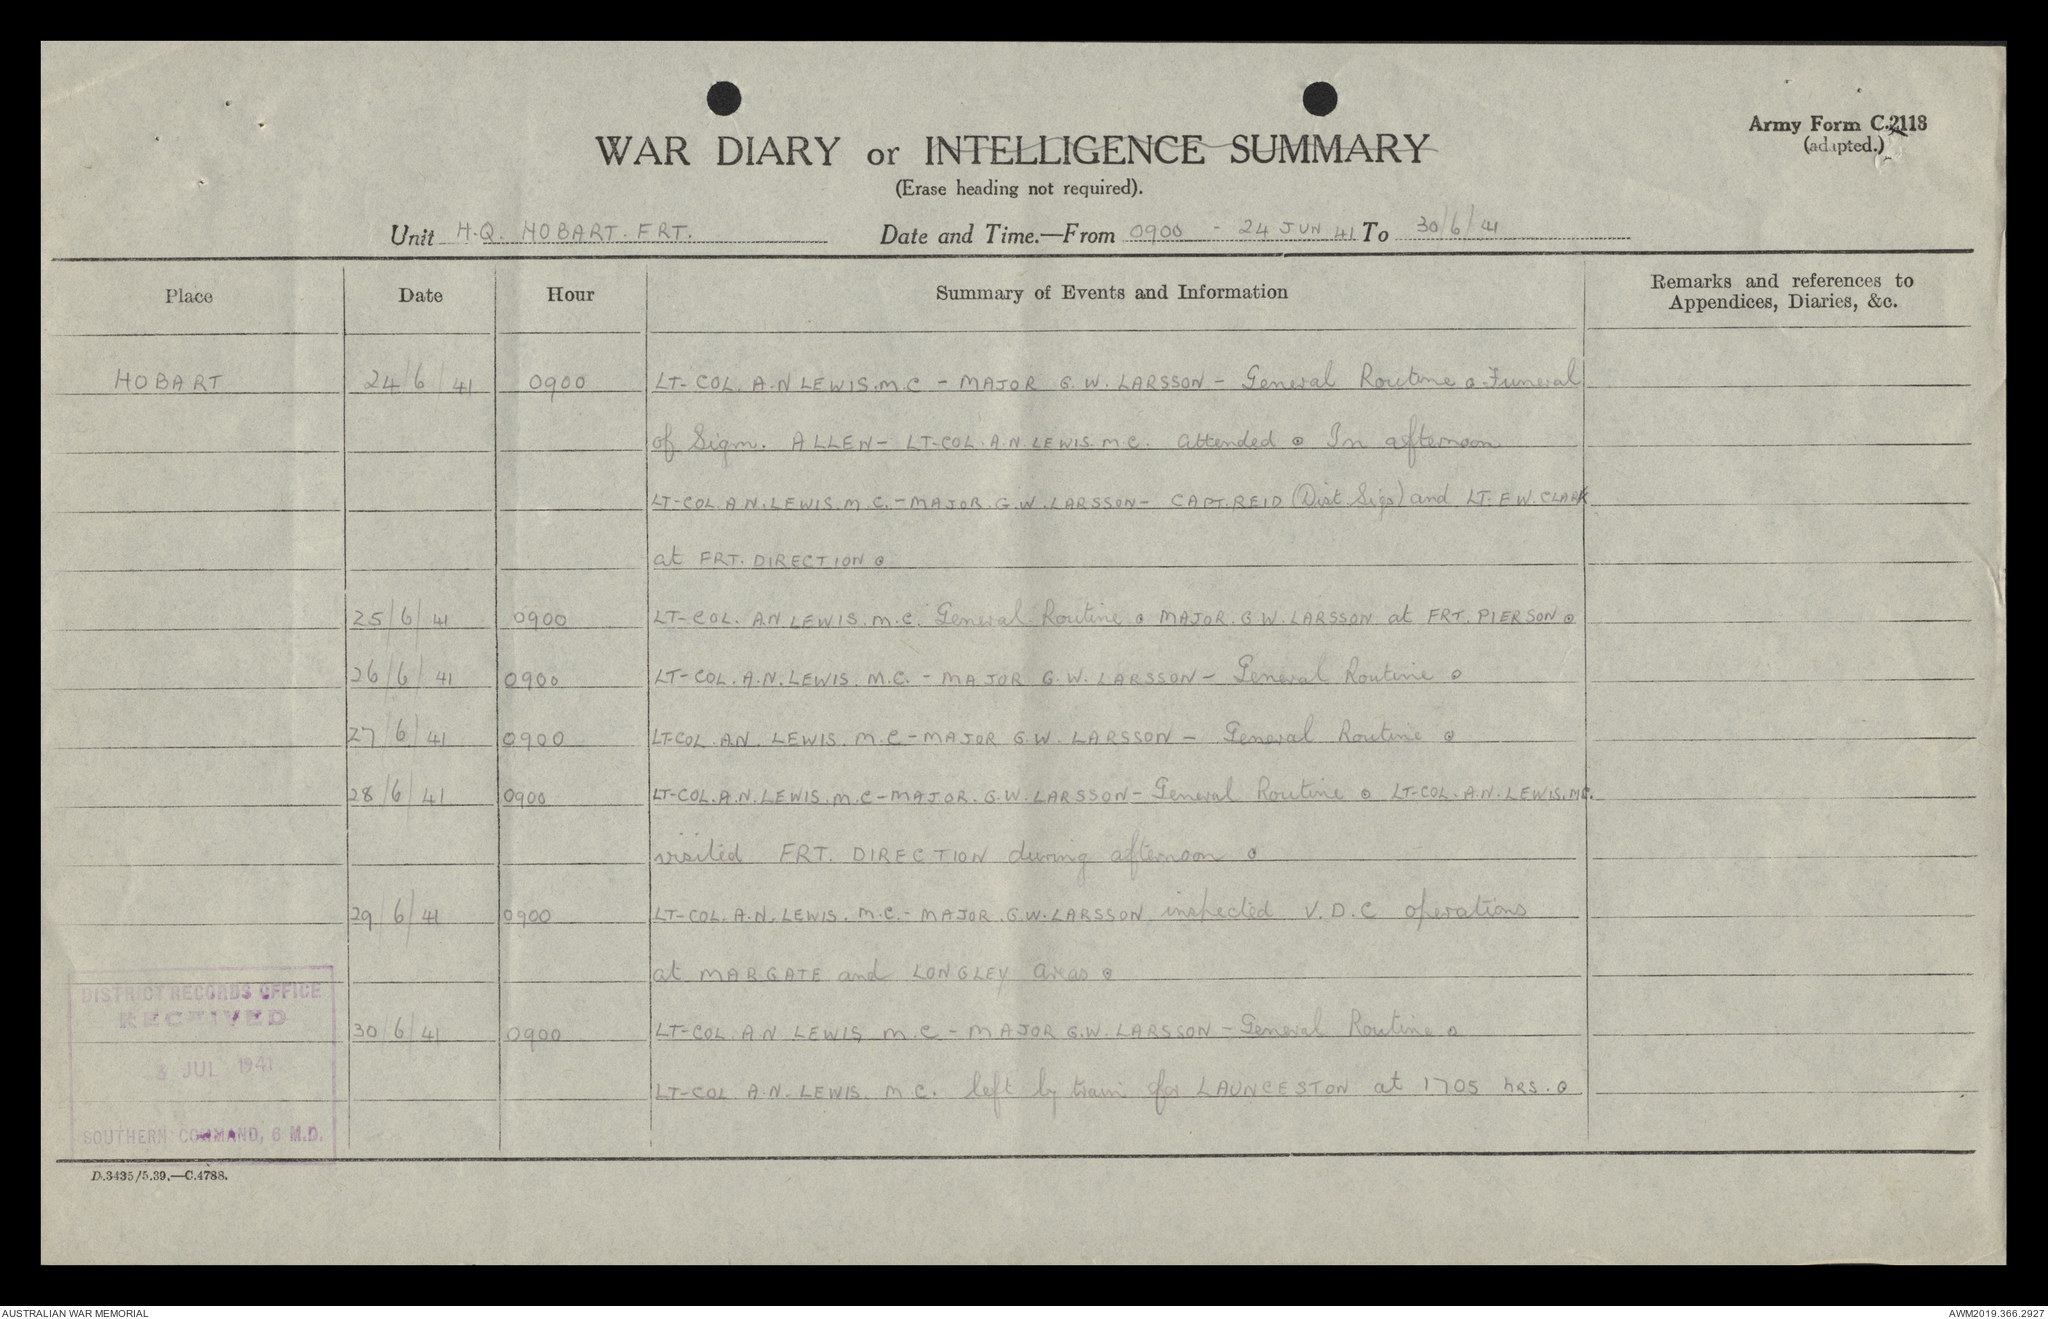 Army Form C.2118
(adapted.)
WAR DIARY or INTELLIGENCE SUMMARY
(Erase heading not required).
Unit H.Q. HOBART. FRT. Date and Time.—From 0900 - 24 JUN 41 To 30/6/41
Place Date Hour Summary of Events and Information Remarks and references to
Appendices, Diaries, &c.
HOBART 24/6/41 0900 LT-COL. A.N LEWIS. M.C - MAJOR G.W. LARSSON - General Routine. Funeral
of Sigm. ALLEN - LT-COL. A.N. LEWIS. M.C. attended. In afternoon
LT-COL. A.N. LEWIS. M.C. - MAJOR. G.W. LARSSON - CAPT. REID (Dist Sigs) and LT. F.W. CLARK
at FRT. DIRECTION.
25/6/41 0900 LT-COL. A.N LEWIS. M.C. General Routine. MAJOR. G.W. LARSSON at FRT. PIERSON.
26/6/41 0900 LT-COL. A.N. LEWIS. M.C. - MAJOR G.W. LARSSON - General Routine.
27/6/41 0900 LT-COL. A.N. LEWIS. M.C - MAJOR G.W. LARSSON - General Routine.
28/6/41 0900 LT-COL. A.N. LEWIS. M.C - MAJOR. G.W. LARSSON - General Routine. LT-COL. A.N. LEWIS. M.C.
visited FRT. DIRECTION during afternoon.
29/6/41 0900 LT-COL. A.N. LEWIS. M.C. - MAJOR. G.W. LARSSON inspected V.D.C operations
at MARGATE and LONGLEY areas.
30/6/41 0900 LT-COL. A.N LEWIS M.C - MAJOR G.W. LARSSON - General Routine.
LT-COL A.N. LEWIS. M.C. left by train for LAUNCESTON at 1705 hRS.
DISTRICT RECORDS OFFICE
RECEIVED
3 JUL 1941
SOUTHERN COMMAND, 6 M.D.
D.3435/5.39.—C.4788.
AUSTRALIAN WAR MEMORIAL
AWM2019.366.2927